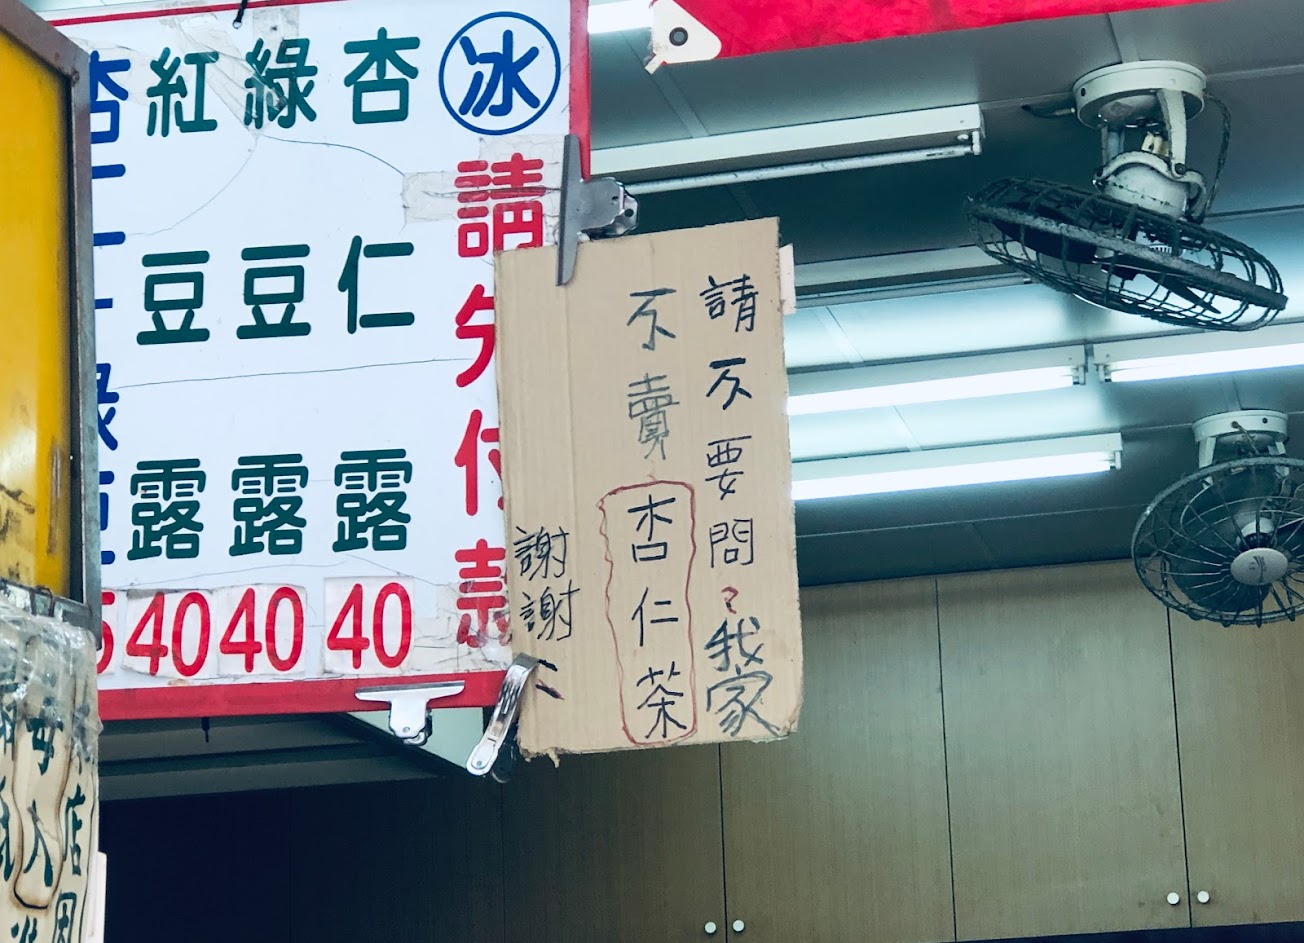 冰
請先付款
杏仁露 40
綠豆露 40
紅豆露 40
請不要問?我家
不賣杏仁茶
謝謝
店因
每人